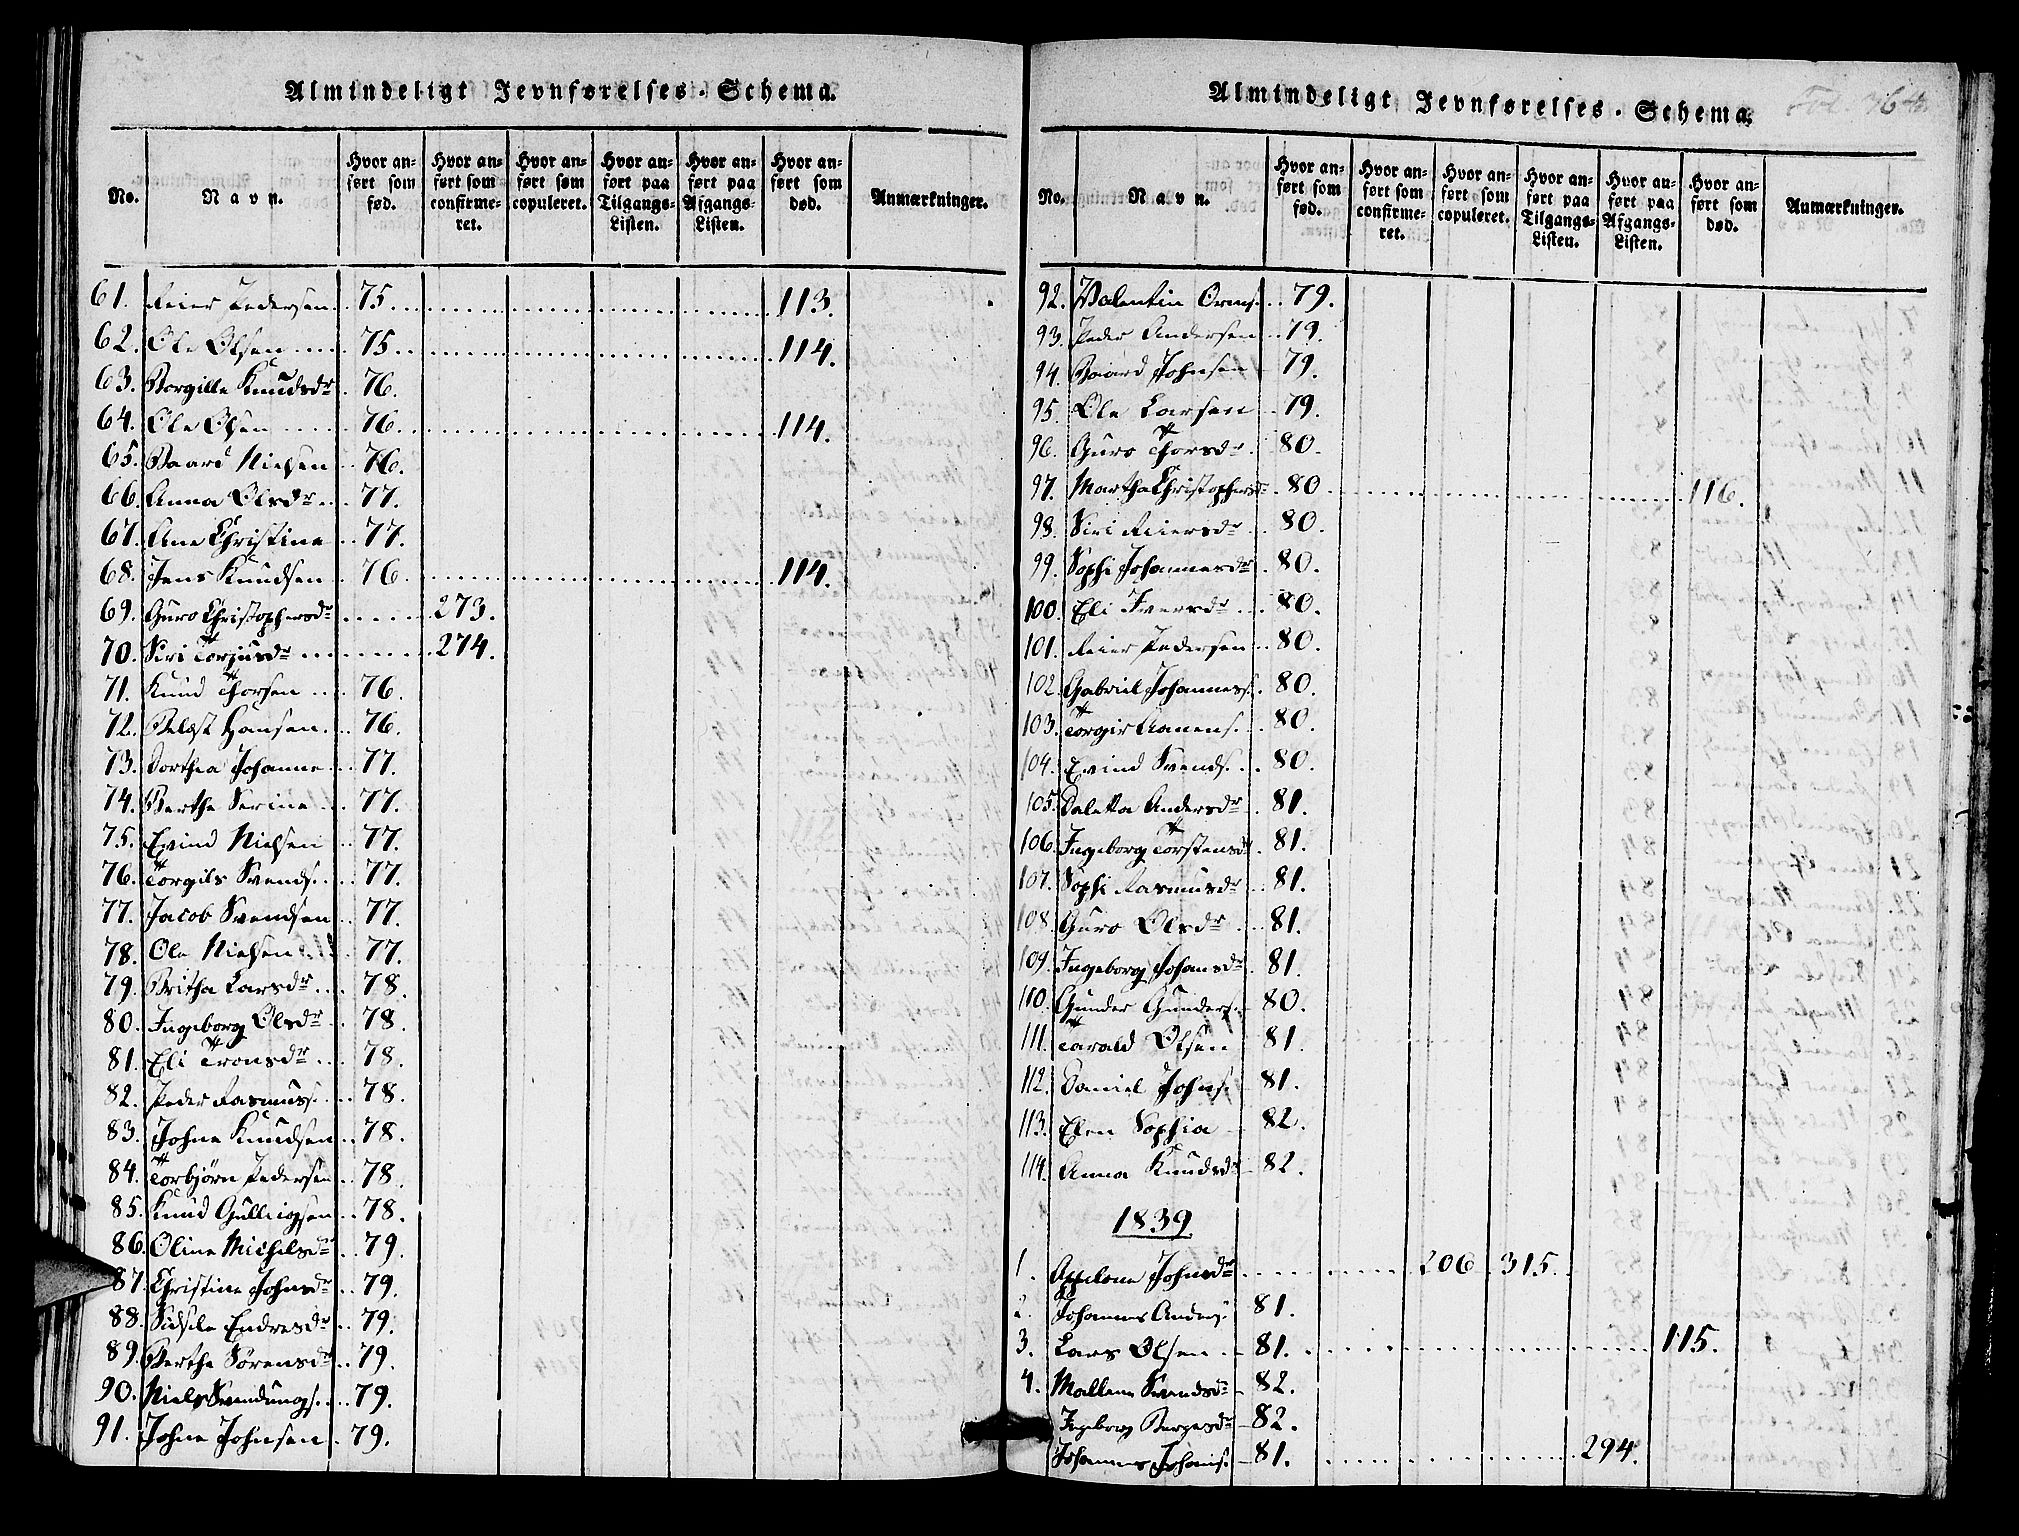 Almindeligt Jevnførelses-Schema.
No. Navn. Hvor anført som fød. Hvor anført som confirmeret. Hvor anført som copuleret. Hvor anført paa Tilgangs-Listen. Hvor anført paa Afgangs-Listen. Hvor anført som død. Anmærkninger.
61. Reier Pedersen 75. 113.
62. Ole Olsen 75. 114.
63. Borgille Knudsdr 76.
64. Ole Olsen 76. 114.
65. Baard Nielsen 76.
66. Anna Olsdr 77.
67. Ane Christine 77.
68. Jens Knudsen 76. 114.
69. Guro Christophersdr 273.
70. Siri Torjusdr 274.
71. Knud Thorsen 76.
72. Hansen 76.
73. Dorthea Johanne 77.
74. Berthe Serine 77.
75. Evind Nielsen 77.
76. Torgils Svends. 77.
77. Jacob Svendsen 77.
78. Ole Nielsen 77.
79. Britha Larsdr 78.
80. Ingeborg Olsdr 78.
81. Eli Tronsdr 78.
82. Peder Rasmuss. 78.
83. Johne Knudsen 78.
84. Torbjørn Pedersen 78.
85. Knud Gullingsen 78.
86. Oline Michelsdr 79.
87. Christine Johnsdr 79.
88. Sidsele Endresdr 79.
89. Berthe Sørensdr 79.
90. Niels Svendungs. 79.
91. Johne Johnsen 79.
Almindeligt Jevnførelses-Schema.
Fol. 364
No. Navn. Hvor anført som fød. Hvor anført som confirmeret. Hvor anført som copuleret. Hvor anført paa Tilgangs-Listen. Hvor anført paa Afgangs-Listen. Hvor anført som død. Anmærkninger.
92. Valentin Orms. 79.
93. Peder Andersen 79.
94. Baard Johnsen 79.
95. Ole Larsen 79.
96. Guro Thorsdr 80.
97. Martha Christophersdr 80 116.
98. Siri Reiersdr 80.
99. Sophi Johannesdr 80.
100. Eli Iversdr 80.
101. Reier Pedersen 80.
102. Gabriel Johanness. 80.
103. Torgir Aanens. 80.
104. Evind Svends. 80.
105. Daletta Andersdr 81.
106. Ingeborg Torstensdr 81.
107. Sophi Rasmusdr 81.
108. Guro Olsdr 81.
109. Ingeborg Johansdr 81.
110. Gunder Gunders. 80.
111. Tarald Olsen 81.
112. Daniel Johns. 81.
113. Elen Sophia 82.
114. Anna Knudsdr 82.
1839
1. Appelone Johnsdr 206 315.
2. Johannes Anders. 81.
3. Lars Olsen 81. 115.
4. Mallene Svendsdr 82.
Ingeborg Borgesdr 82.
Johannes Johans. 81. 294.